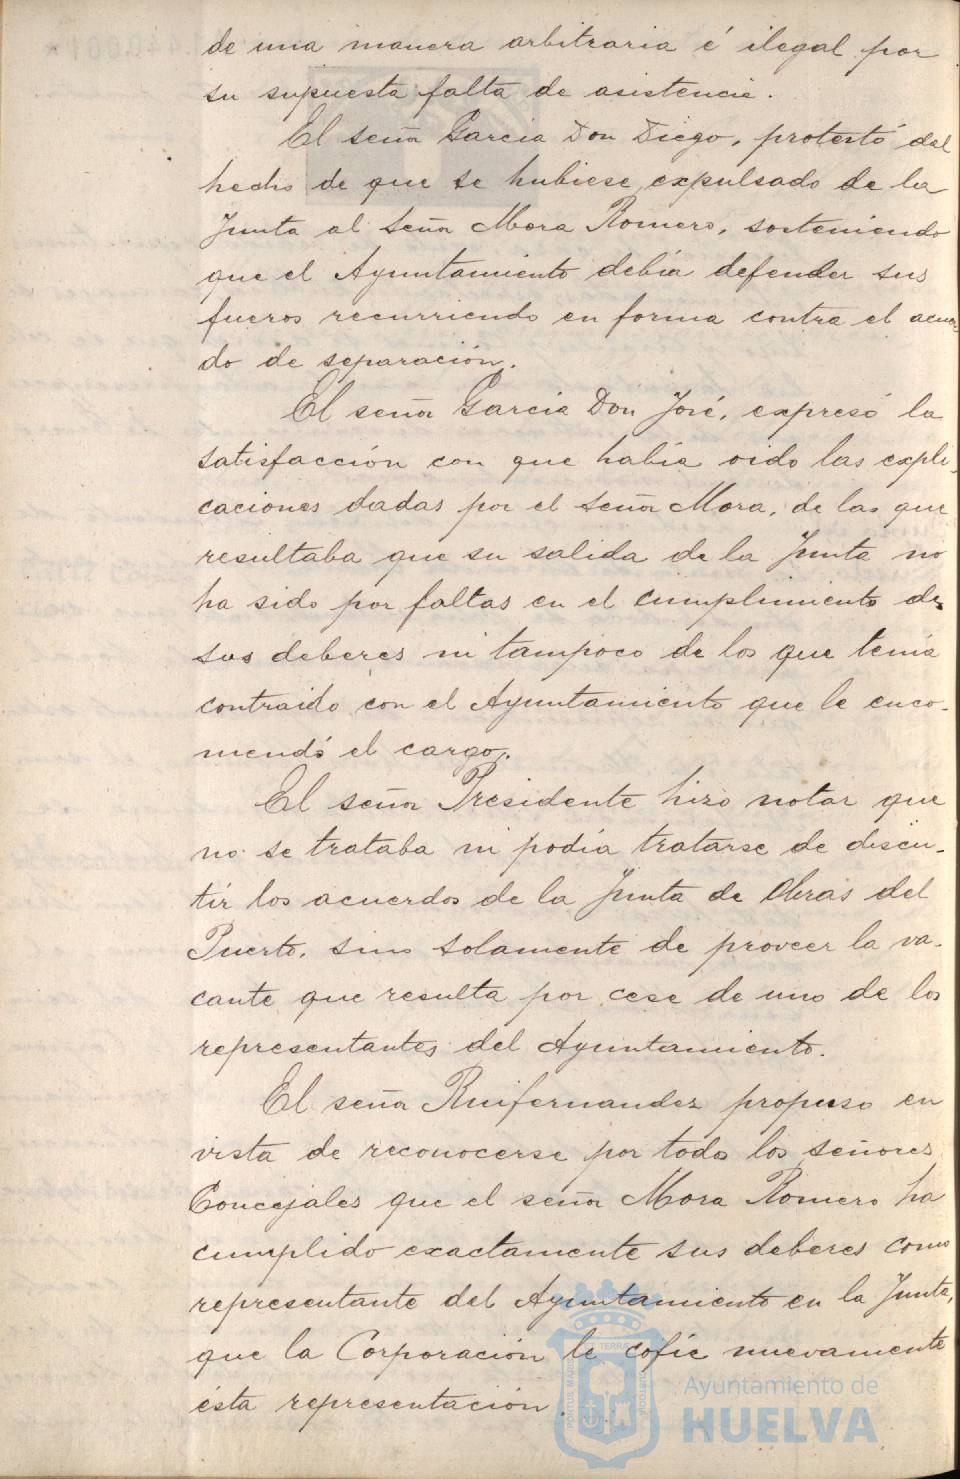 de una manera arbitraria é ilegal por
su supuesta falta de asistencia.
El señor Garcia Don Diego, protestó del
hecho de que se hubiese expulsado de la
Junta al señor Mora Romero, sosteniendo
que el Ayuntamiento debía defender sus
fueros recurriendo en forma contra el acuer-
do de separación.
El señor Garcia Don José, expresó la
satisfacción con que había oido las expli-
caciones dadas por el señor Mora, de las que
resultaba que su salida de la Junta no
ha sido por faltas en el cumplimiento de
sus deberes ni tampoco de los que tenía
contraido con el Ayuntamiento que le enco-
mendó el cargo.
El señor Presidente hizo notar que
no se trataba ni podía tratarse de discu-
tir los acuerdos de la Junta de Obras del
Puerto, sino solamente de proveer la va-
cante que resulta por cese de uno de los
representantes del Ayuntamiento.
El señor Ruifernandez propuso en
vista de reconocerse por todo los señores
Concejales que el señor Mora Romero ha
cumplido exactamente sus deberes como
representante del Ayuntamiento en la Junta,
que la Corporación le cofíe nuevamente
ésta representación.
Ayuntamiento de
HUELVA